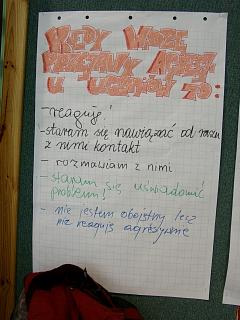 KIEDY WIDZĘ
PRZEJAWY AGRESJI
U UCZNIÓW TO:
- reaguję!
- staram się nawiązać od razu
z nimi kontakt
- rozmawiam z nimi
- staram się uświadomić
problemy
- nie jestem obojętny lecz
nie reaguję agresywnie